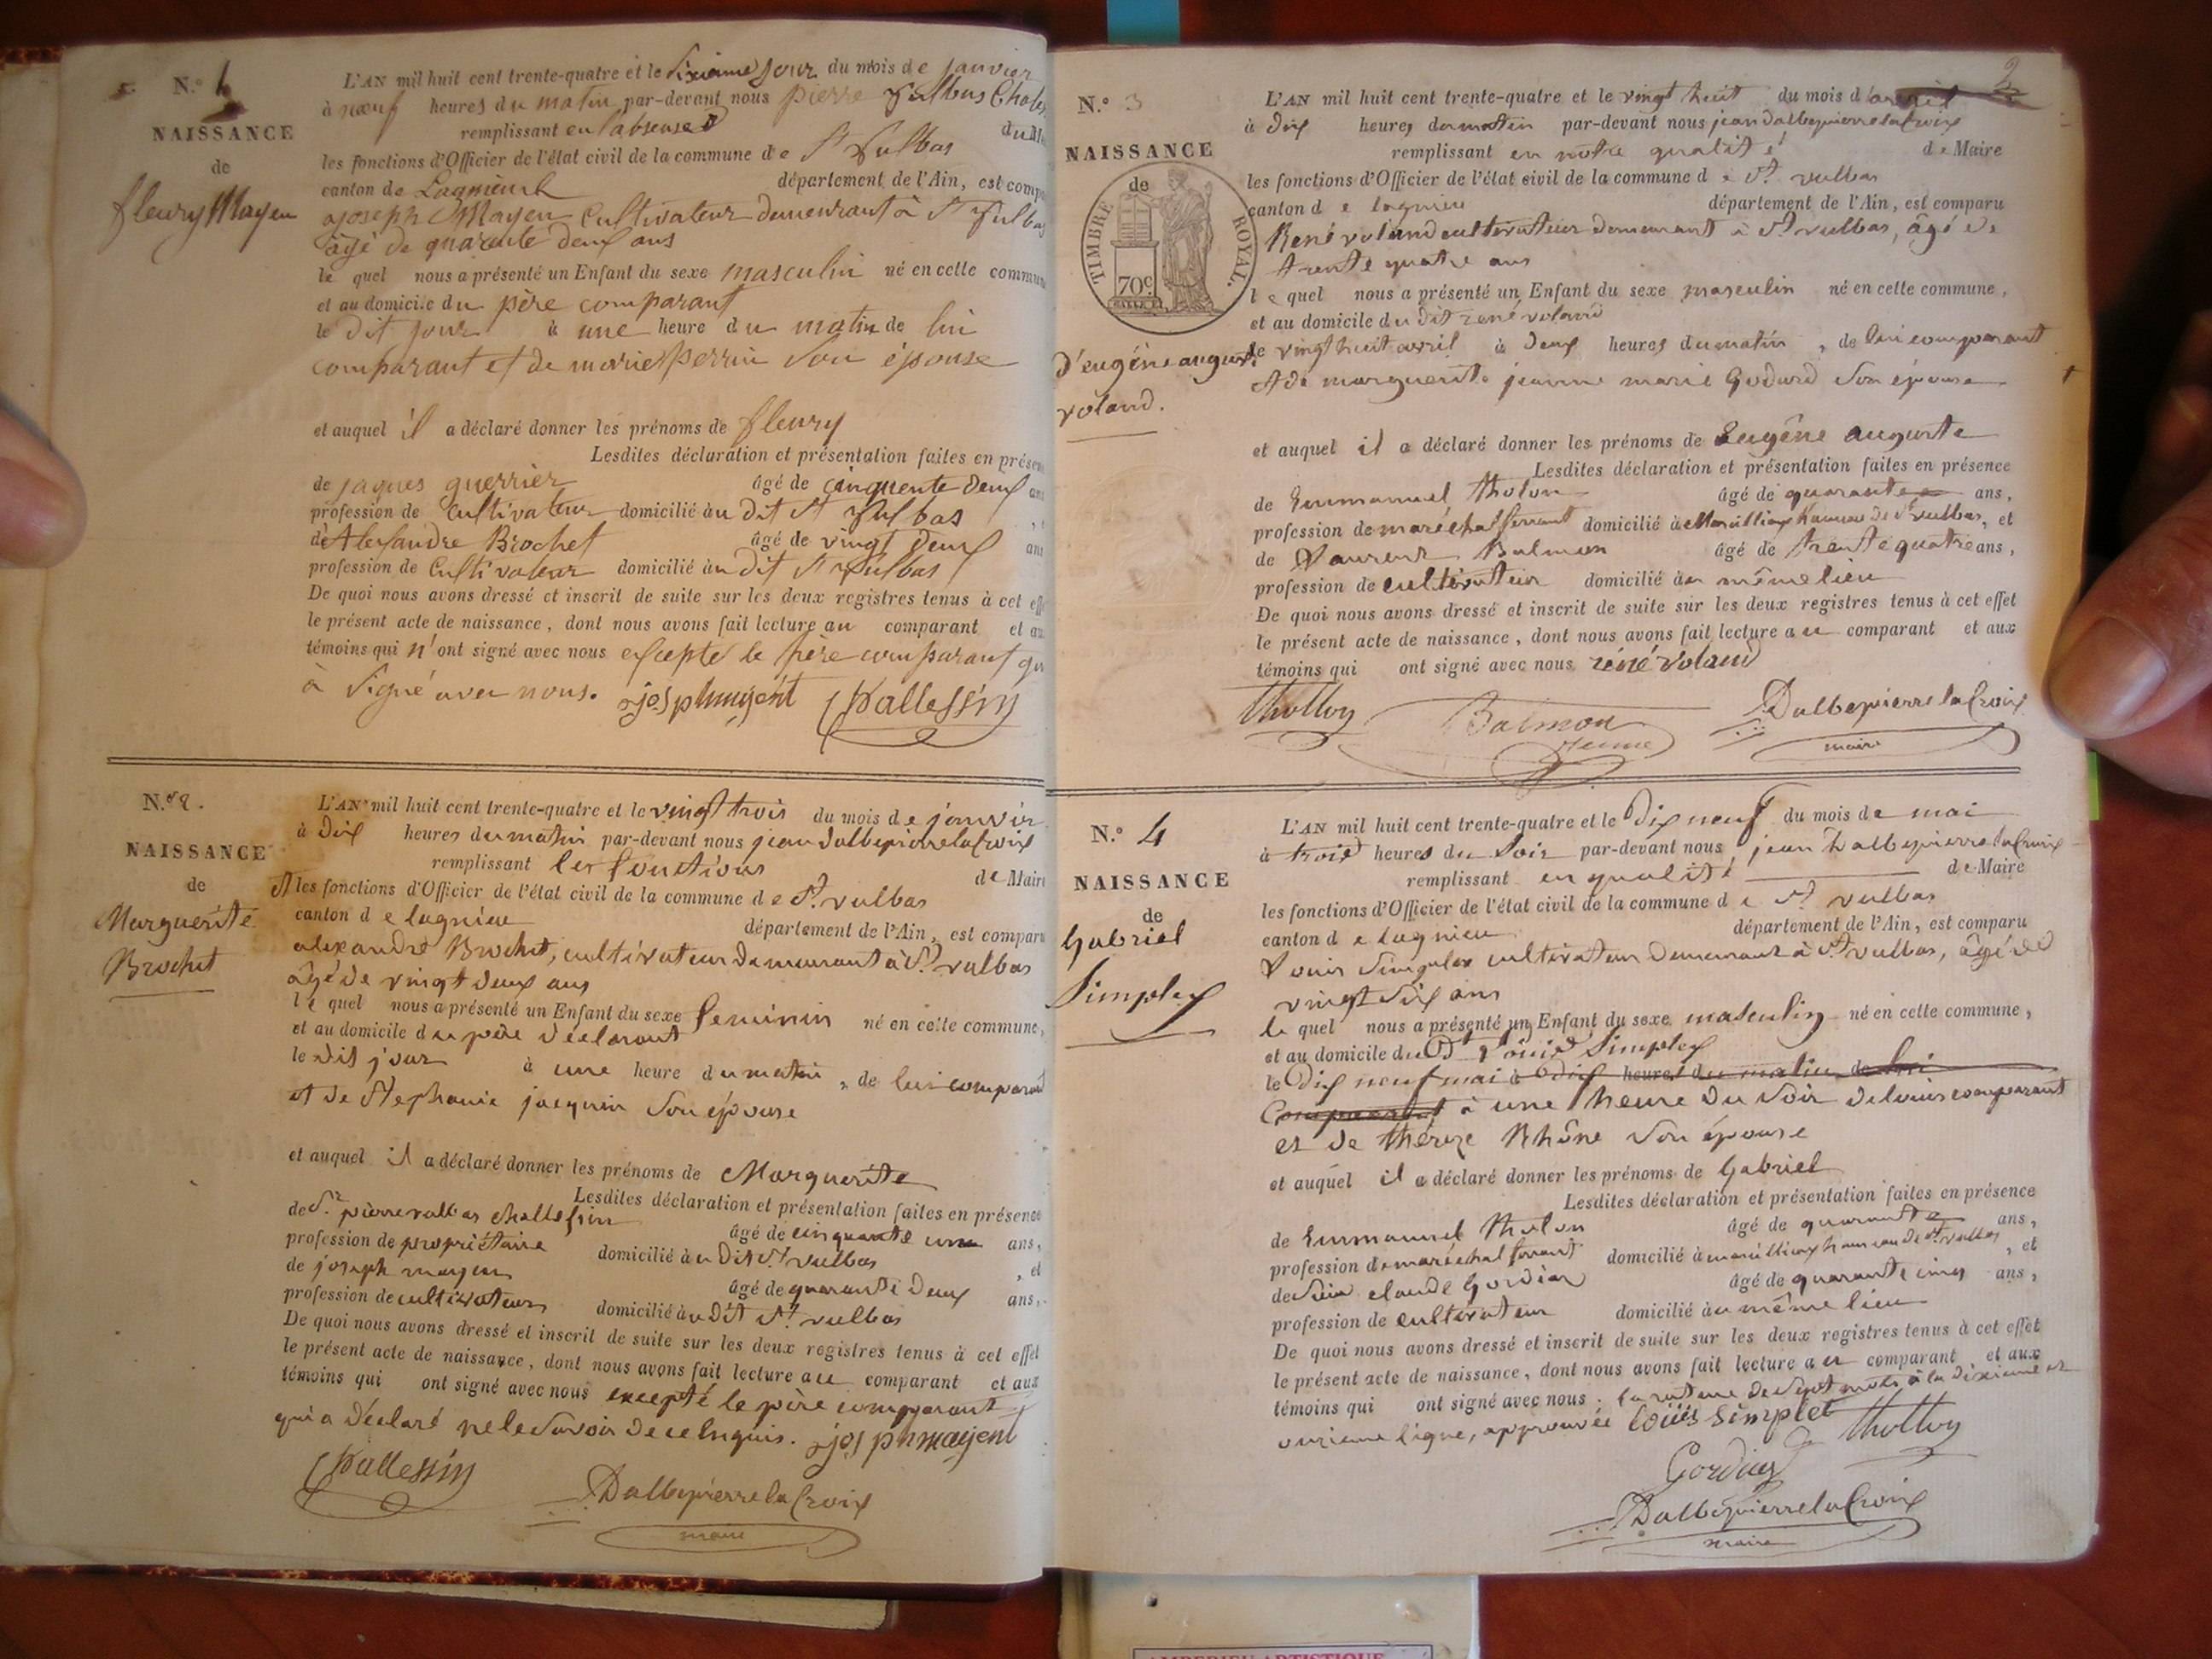 N.º 1
NAISSANCE
de
fleury Mayen
L'AN mil huit cent trente-quatre et le Sixieme jour du mois de janvier
à nœuf heures du matin par-devant nous pierre Vulbas Chales
remplissant en l'absense d du M
les fonctions d'Officier de l'état civil de la commune de St Vulbas
canton de Lagnieu département de l'Ain, est comp
joseph Mayen Cultivateur demeurant à St Vulbas
âgé de quarante deux ans
le quel nous a présenté un Enfant du sexe masculin né en cette commun
et au domicile du père comparant
le dit jour à une heure du matin de lui
comparant et de marie perrin Son épouse
et auquel il a déclaré donner les prénoms de fleury
Lesdites déclaration et présentation faites en présen
de jaques guerrier âgé de cinquente deux an
profession de Cultivateur domicilié au dit St Vulbas
de Alexandre Brochet âgé de vingt deux an
profession de Cultivateur domicilié au dit St Vulbas
De quoi nous avons dressé et inscrit de suite sur les deux registres tenus à cet eff
le présent acte de naissance, dont nous avons fait lecture au comparant et au
témoins qui n'ont signé avec nous excepté le père comparant qu
a Signé avec nous. josph mayent Challessin
N.º 2.
NAISSANCE
de
Marguerite
Brochet
L'AN mil huit cent trente-quatre et le vingt trois du mois de janvir
à dix heures du matin par-devant nous jean dalbepierrelacroix
remplissant les fonctions de Maire
et les fonctions d'Officier de l'état civil de la commune de St. vulbas
canton de lagnieu département de l'Ain, est comparu
alexandre Brochet, cultivateur demeurant à St. vulbas
âgé de vingt deux ans
le quel nous a présenté un Enfant du sexe feminin né en cette commune,
et au domicile du père déclarant
le dit jour à une heure du matin, de lui comparant
et de Stephanie jacquin son épouse
et auquel il a déclaré donner les prénoms de Marguerite
Lesdites déclaration et présentation faites en présence
de Sr. pierre vulbas challessin âgé de cinquante un ans,
profession de propriétaire domicilié au dit St. vulbas, et
de joseph mayen âgé de quarante deux ans,
profession de cultivateur domicilié au dit St. vulbas
De quoi nous avons dressé et inscrit de suite sur les deux registres tenus à cet effet
le présent acte de naissance, dont nous avons fait lecture au comparant et aux
témoins qui ont signé avec nous excepté le père comparant
qui a déclaré ne le savoir de ce enquis. josph mayent
Challessin Dalbepierrelacroix
maire
2
N.º 3
NAISSANCE
de
TIMBRE ROYAL.
70c.
d'eugéne auguste
voland.
L'AN mil huit cent trente-quatre et le vingt huit du mois d'avril
à dix heures du matin par-devant nous jean dalbepierrelacroix
remplissant en notre qualité de Maire
les fonctions d'Officier de l'état civil de la commune de St. vulbas
canton de lagnieu département de l'Ain, est comparu
René voland cultivateur demeurant à St. vulbas, âgé de
trente quatre ans
le quel nous a présenté un Enfant du sexe masculin né en cette commune,
et au domicile du dit rené voland
le vingt huit avril à deux heures du matin, de lui comparant
et de marguerite jeanne marie Godard son épouse
et auquel il a déclaré donner les prénoms de Eugêne auguste
Lesdites déclaration et présentation faites en présence
de Emmanuel tholon âgé de quarante ans,
profession de maréchal ferrant domicilié à Marcillieux hameau de St. vulbas, et
de Laurent Balmon âgé de trente quatre ans,
profession de cultivateur domicilié au même lieu
De quoi nous avons dressé et inscrit de suite sur les deux registres tenus à cet effet
le présent acte de naissance, dont nous avons fait lecture au comparant et aux
témoins qui ont signé avec nous réné voland
thollon Balmon Dalbepierrelacroix
jeune maire
N.º 4
NAISSANCE
de
Gabriel
Simplex
L'AN mil huit cent trente-quatre et le dix neuf du mois de mai
à trois heures du soir par-devant nous jean Dalbepierrelacroix
remplissant en qualité de Maire
les fonctions d'Officier de l'état civil de la commune de St. vulbas
canton de lagnieu département de l'Ain, est comparu
Louis Simplex cultivateur demeurant à St. vulbas, âgé de
vingt six ans
le quel nous a présenté un Enfant du sexe masculin né en cette commune,
et au domicile du dt Louis Simplex
le dix neuf mai à dix heures du matin de lui
Comparant à une heure du soir de lui comparant
et de thérèze Rhône son épouse
et auquel il a déclaré donner les prénoms de Gabriel
Lesdites déclaration et présentation faites en présence
de Emmanuel tholon âgé de quarante ans,
profession de maréchal ferrant domicilié à marcillieux hameau de St. vulbas, et
de claude Gordian âgé de quarante cinq ans,
profession de cultivateur domicilié au même lieu
De quoi nous avons dressé et inscrit de suite sur les deux registres tenus à cet effet
le présent acte de naissance, dont nous avons fait lecture au comparant et aux
témoins qui ont signé avec nous. la rature de sept mots à la dixieme et
onzieme ligne, approuvée loüis Simplet thollon
Gordian
Dalbepierrelacroix
maire
AMBERIEU ARTISTIQUE